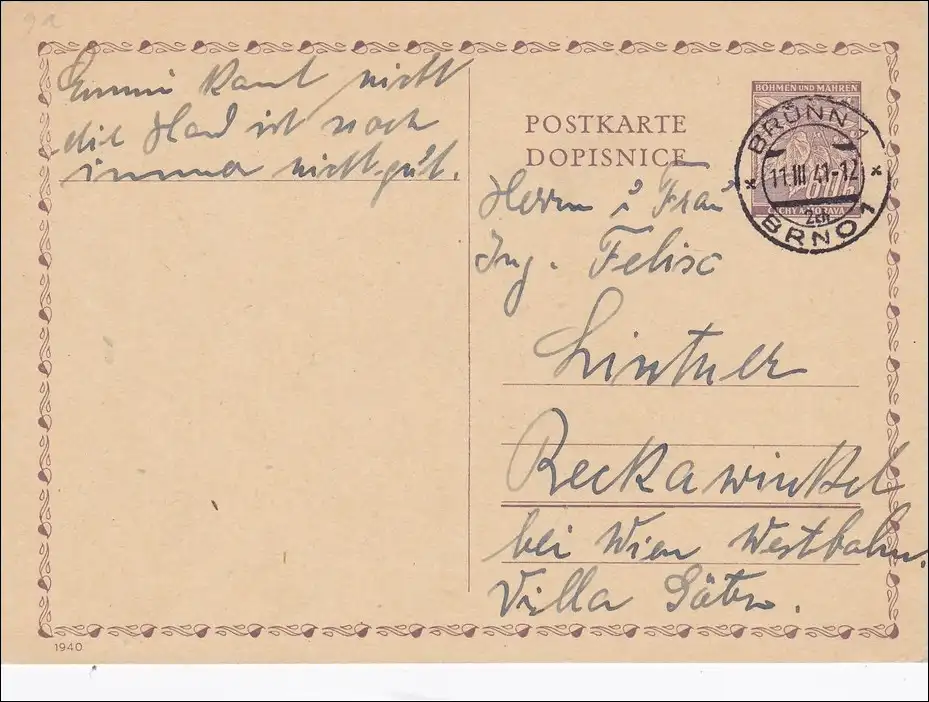 Emmi kamt nicht
die Hand ist noch
immer nicht gut.
POSTKARTE
DOPISNICE
BÖHMEN UND MÄHREN
60 h
ČECHY A MORAVA
BRÜNN 1
11. III 41-12
BRNO 1
Herrn u Frau
Ing. Felix
Lintner
Reckawinkel
bei Wien Westbahn.
Villa
1940